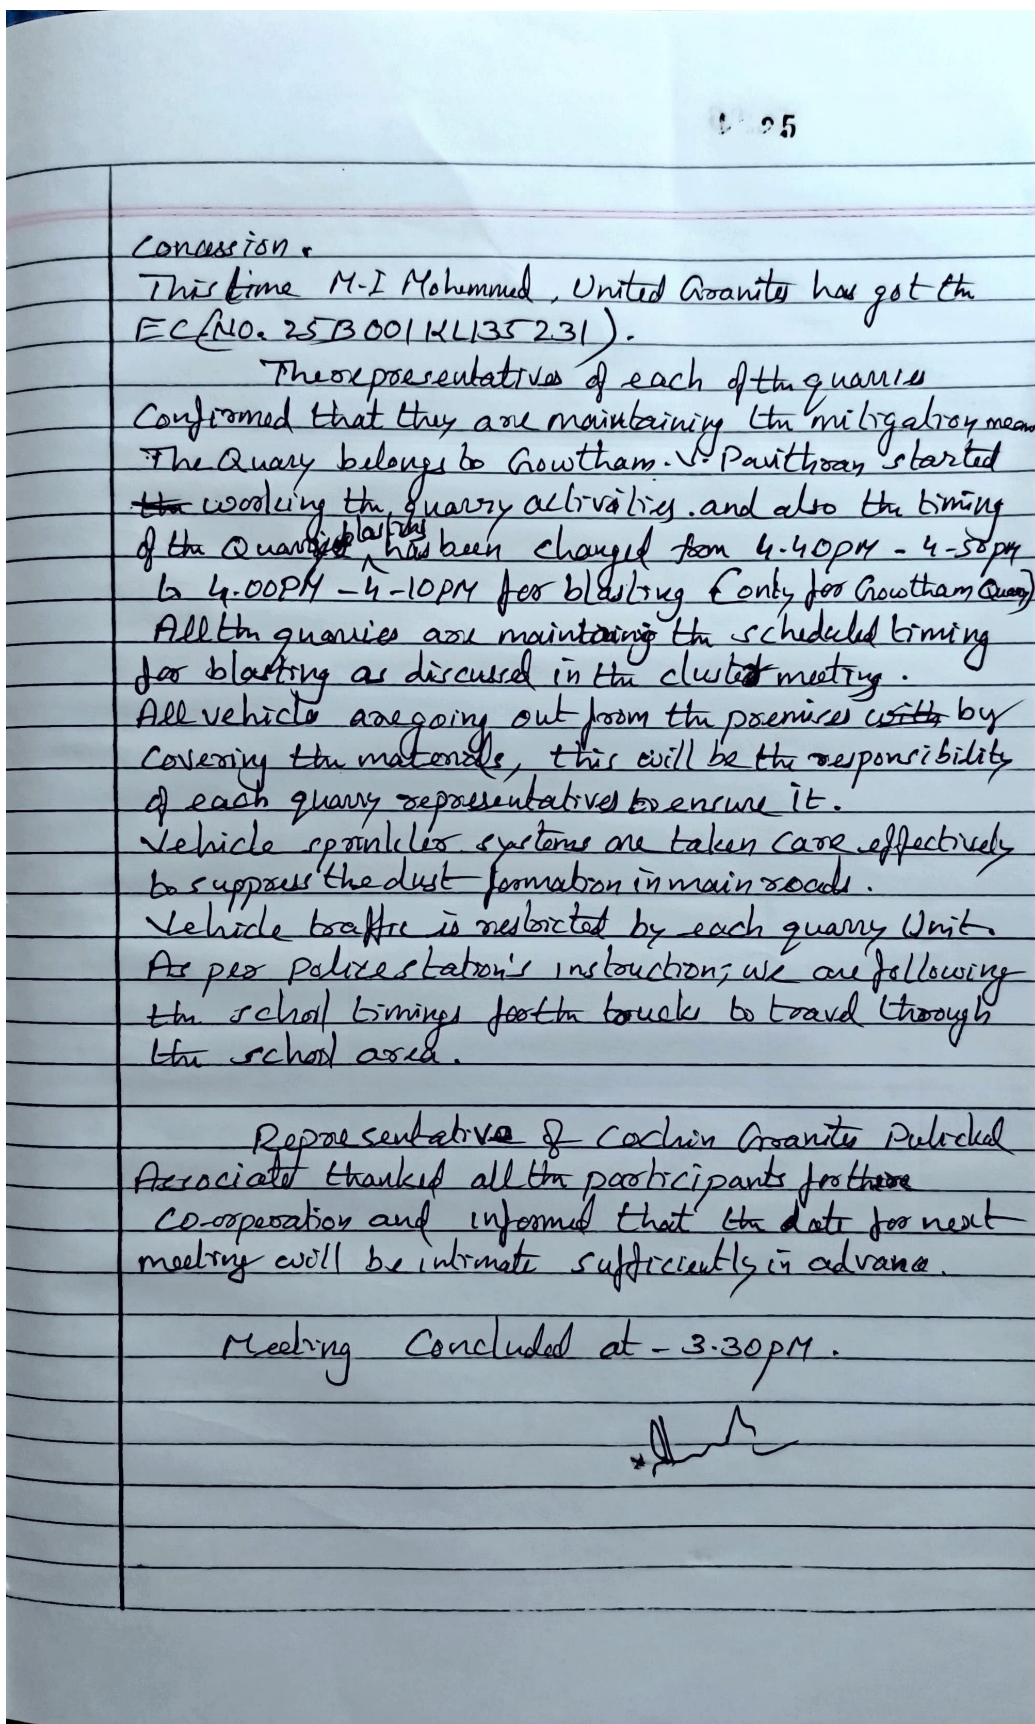 25
Concession.
This time M-I Mohammed, United Granites has got the
EC (NO. 25B001KL135231).
The representatives of each of the quarries
Confirmed that they are maintaining the mitigation meas
The Quary belongs to Gowtham. V. Pavithran started
the working the quarry activities. and also the timing
of the Quarries blasting has been changed from 4.40PM - 4-50PM
to 4.00PM - 4-10PM for blasting (only for Gowtham Quary)
All the quarries are maintaining the scheduled timing
for blasting as discussed in the cluster meeting.
All vehicle are going out from the premises with by
covering the materials, this will be the responsibility
of each quarry representatives to ensure it.
Vehicle sprinkler systems are taken care effectively
to suppress the dust formation in main roads.
Vehicle traffic is restricted by each quarry Unit.
As per police station's instruction, we are following
the school timings for the trucks to travel through
the school area.
Representative of Cochin Granites Pulickal
Associated thanked all the participants for there
co-operation and informed that the date for next
meeting will be intimate sufficiently in advance.
Meeting Concluded at - 3.30PM.